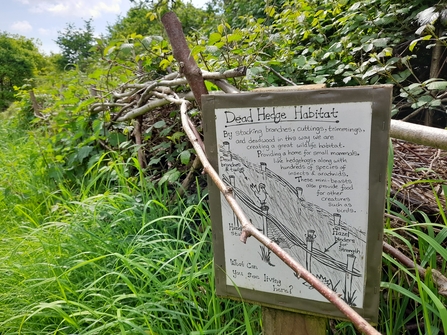 Dead Hedge Habitat
By stacking branches, cuttings, trimmings,
and deadwood in this way we are
creating a great wildlife habitat.
Providing a home for small mammals
like hedgehogs along with
hundreds of species of
insects & arachnids.
These mini-beasts
also provide food
for other
creatures
such as
birds.
Hazel
binders
for
strength
What can
you see living
here?